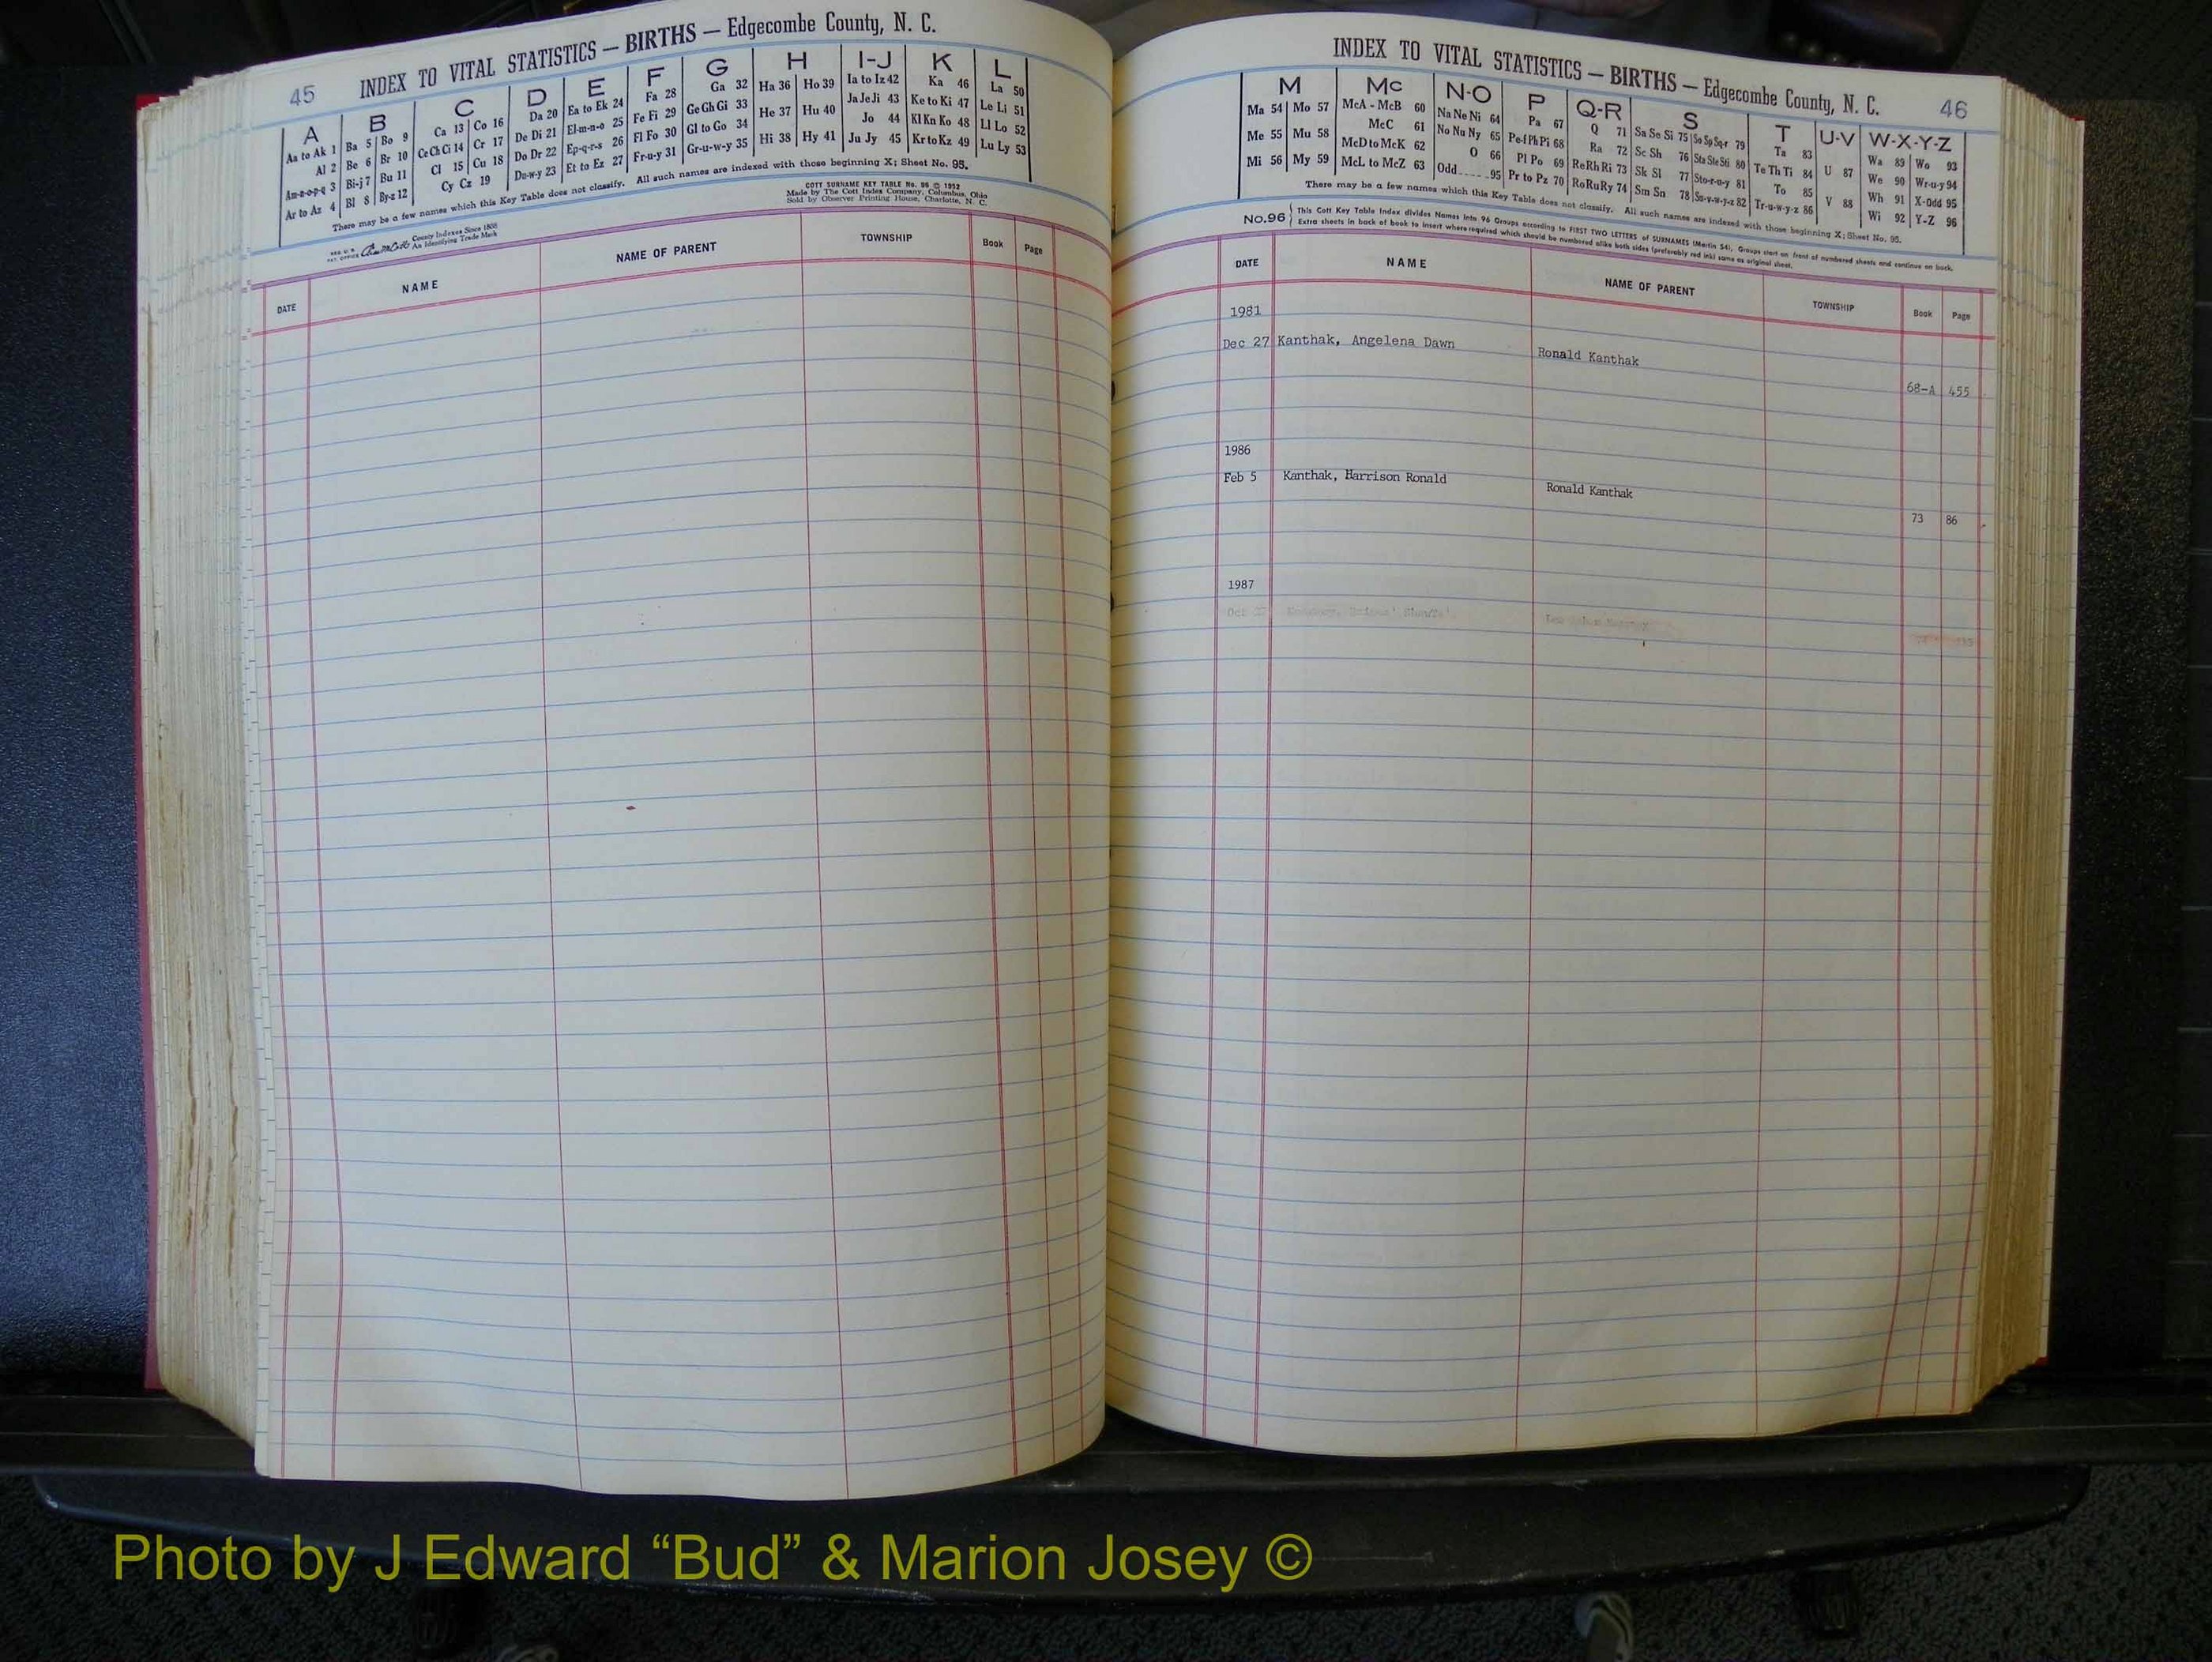 45 INDEX TO VITAL STATISTICS — BIRTHS — Edgecombe County, N. C.
A B C D E F G H I-J K L
Aa to Ak 1 Ba 5 Bo 9 Ca 13 Co 16 Da 20 Ea to Ek 24 Fa 28 Ga 32 Ha 36 Ho 39 Ia to Iz 42 Ka 46 La 50
Al 2 Be 6 Br 10 Ce Ch Ci 14 Cr 17 De Di 21 El-m-n-o 25 Fe Fi 29 Ge Gh Gi 33 He 37 Hu 40 Ja Je Ji 43 Ke to Ki 47 Le Li 51
Am-n-o-p-q 3 Bi-j 7 Bu 11 Cl 15 Cu 18 Do Dr 22 Ep-q-r-s 26 Fl Fo 30 Gl to Go 34 Hi 38 Hy 41 Jo 44 Kl Kn Ko 48 Ll Lo 52
Ar to Az 4 Bl 8 By-z 12 Cy Cz 19 Du-w-y 23 Et to Ez 27 Fr-u-y 31 Gr-u-w-y 35 Ju Jy 45 Kr to Kz 49 Lu Ly 53
There may be a few names which this Key Table does not classify. All such names are indexed with those beginning X; Sheet No. 95.
COTT SURNAME KEY TABLE No. 96 © 1952
Made by The Cott Index Company, Columbus, Ohio
Sold by Observer Printing House, Charlotte, N. C.
County Indexes Since 1888
An Identifying Trade Mark
DATE NAME NAME OF PARENT TOWNSHIP Book Page
INDEX TO VITAL STATISTICS — BIRTHS — Edgecombe County, N. C. 46
M Mc N-O P Q-R S T U-V W-X-Y-Z
Ma 54 Mo 57 McA - McB 60 Na Ne Ni 64 Pa 67 Q 71 Sa Se Si 75 So Sp Sq-r 79 Ta 83 U 87 Wa 89 Wo 93
Me 55 Mu 58 McC 61 No Nu Ny 65 Pe-f Ph Pi 68 Ra 72 Sc Sh 76 Sta Ste Sti 80 Te Th Ti 84 V 88 We 90 Wr-u-y 94
Mi 56 My 59 McD to McK 62 O 66 Pl Po 69 Re Rh Ri 73 Sk Sl 77 Sto-r-u-y 81 To 85 Wh 91 X-Odd 95
McL to McZ 63 Odd 95 Pr to Pz 70 Ro Ru Ry 74 Sm Sn 78 Su-v-w-y-z 82 Tr-u-w-y-z 86 Wi 92 Y-Z 96
There may be a few names which this Key Table does not classify. All such names are indexed with those beginning X; Sheet No. 95.
No.96 This Cott Key Table Index divides Names into 96 Groups according to FIRST TWO LETTERS of SURNAMES (Martin 54), Groups start on front of numbered sheets and continue on back.
Extra sheets in back of book to insert where required which should be numbered alike both sides (preferably red ink) same as original sheet.
DATE NAME NAME OF PARENT TOWNSHIP Book Page
1981
Dec 27 Kanthak, Angelena Dawn Ronald Kanthak
68-A 455
1986
Feb 5 Kanthak, Harrison Ronald Ronald Kanthak
73 86
1987
Oct
Photo by J Edward “Bud” & Marion Josey ©